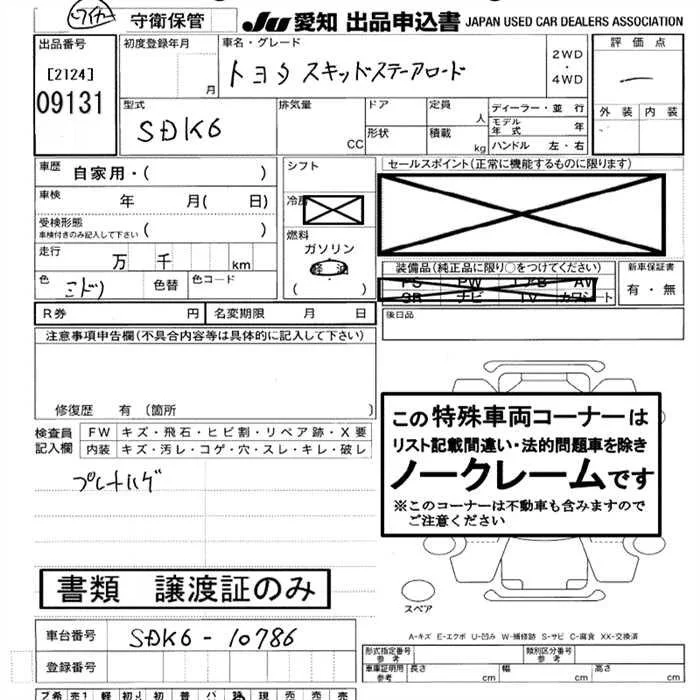 ワイド
守衛保管
JU 愛知 出品申込書 JAPAN USED CAR DEALERS ASSOCIATION
出品番号
[2124]
09131
初度登録年月
月
車名・グレード
トヨタ スキッドステアロード
2WD
・
4WD
評価点
外装 内装
型式
SDK6
排気量
CC
ドア
形状
定員
人
積載
kg
ディーラー・並行
モデル年式 年
ハンドル 左・右
車歴
自家用・( )
車検 年 月( 日)
受検形態
車検付きのみ記入して下さい ( )
走行 万 千 km
色 ミドリ 色替 色コード
シフト
燃料
ガソリン
軽油
( )
セールスポイント(正常に機能するものに限ります)
装備品(純正品に限り○をつけてください)
PS PW エアB AW
SR ナビ TV カワシート
新車保証書
有・無
後日品
R券 円 名変期限 月 日
注意事項申告欄(不具合内容等は具体的に記入して下さい)
修復歴 有 〔箇所 〕
検査員記入欄
FW キズ・飛石・ヒビ割・リペア跡・X要
内装 キズ・汚レ・コゲ・穴・スレ・キレ・破レ
プレートハゲ
この特殊車両コーナーは
リスト記載間違い・法的問題車を除き
ノークレームです
※このコーナーは不動車も含みますので
ご注意ください
書類 譲渡証のみ
スペア
A-キズ E-エクボ U-凹み W-補修跡 S-サビ C-腐食 XX-交換済
車台番号 SDK6-10786
登録番号
形式指定番号 参考
類別区分番号 参考
車庫証明用 参考 長さ cm 幅 cm 高さ cm